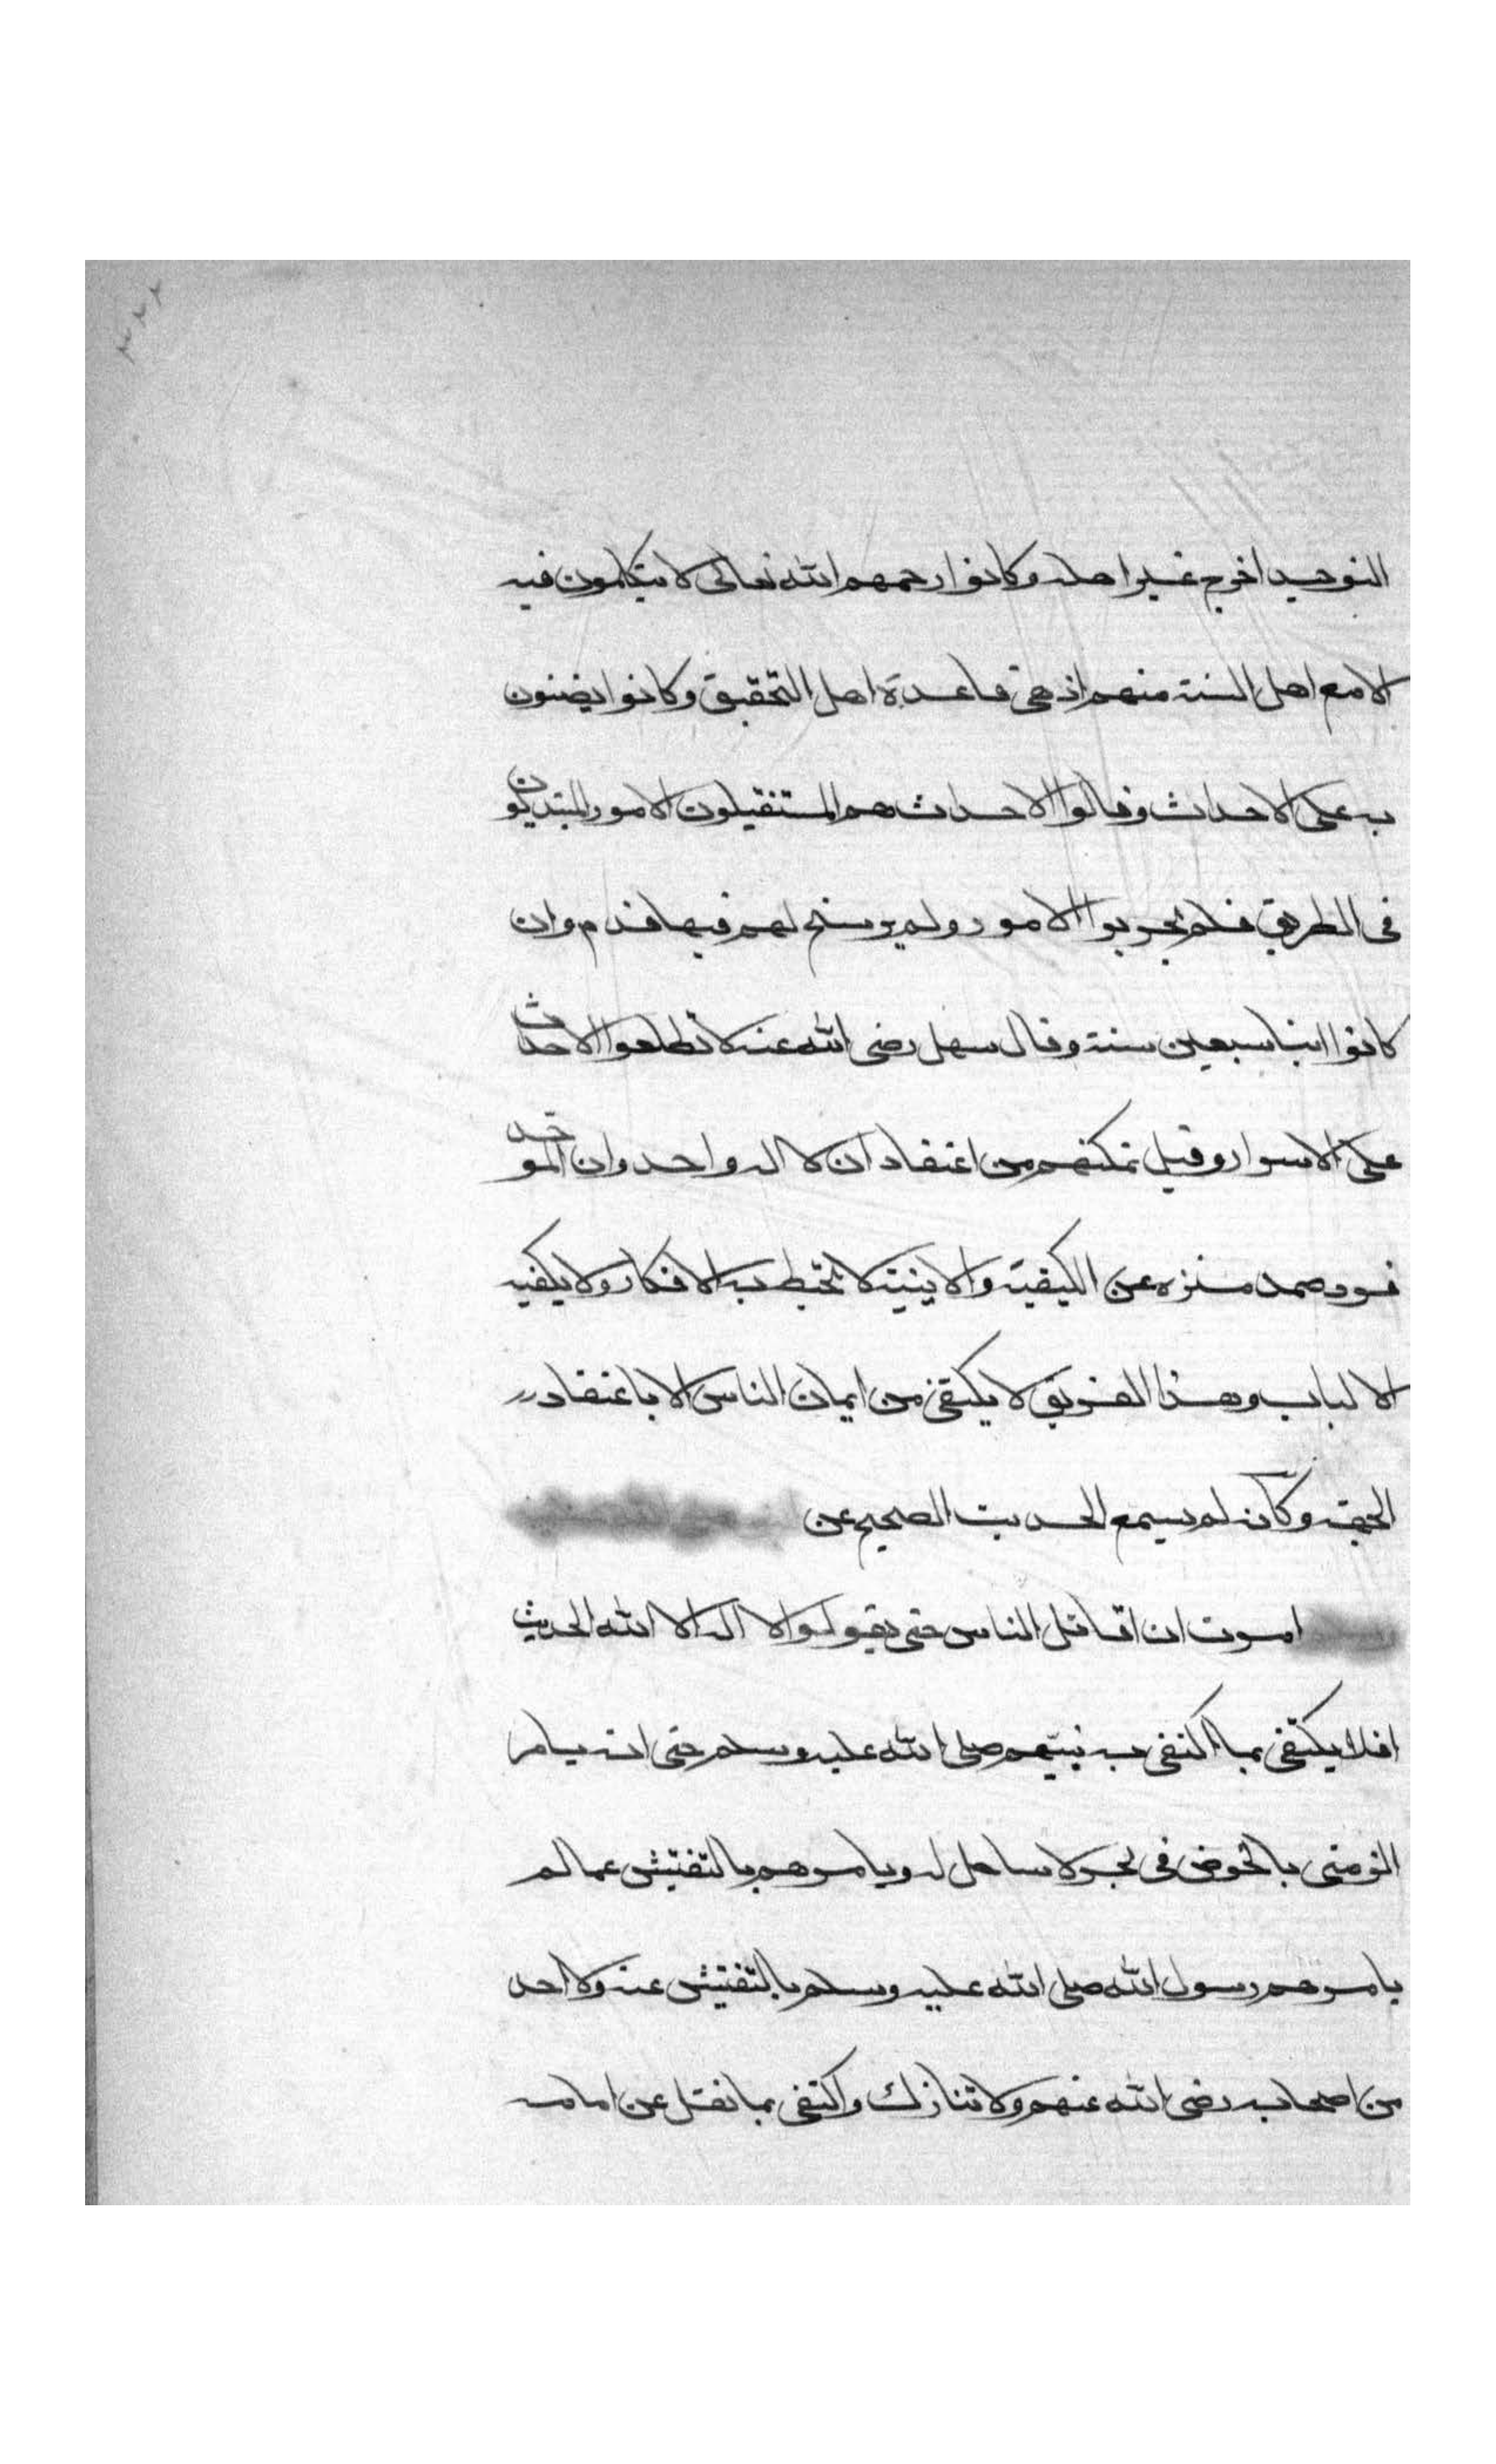 التوحيد اخرج غير اهله وكانوا رحمهم الله تعالى لا يتكلمون فيه
الا مع اهل السنة منهم اذ هي قاعدة اهل التحقيق وكانوا يضنون
به على الاحداث وقالوا الاحداث هم المستقبلون الامور المبتديون
في الطريق فلم يجربوا الامور ولم يرسخ لهم فيها قدم وان
كانوا ابنا سبعين سنة وقال سهل رضي الله عنه لا تطلعوا الاحداث
على الاسرار وقبل تمكنهم من اعتقاد ان لا اله واحد وان الموحد
فرد صمد منزه عن الكيفية والاينية لا تحيط به الافكار ولا يكفيه
الالباب وهذا الفريق لا يكتفي من ايمان الناس الا باعتقاد
الجهة وكأنه لم يسمع الحديث الصحيح عن
امرت ان اقاتل الناس حتى يقولوا لا اله الا الله الحديث
افلا يكتفي بما اكتفى به نبيهم صلى الله عليه وسلم حتى انه يامر
الزمنى بالخوض في بحر لا ساحل له ويامرهم بالتفتيش عما لم
يامرهم رسول الله صلى الله عليه وسلم بالتفتيش عنه ولا احد
من اصحابه رضي الله عنهم ولا تنازل واكتفى بما نقل عن امامه